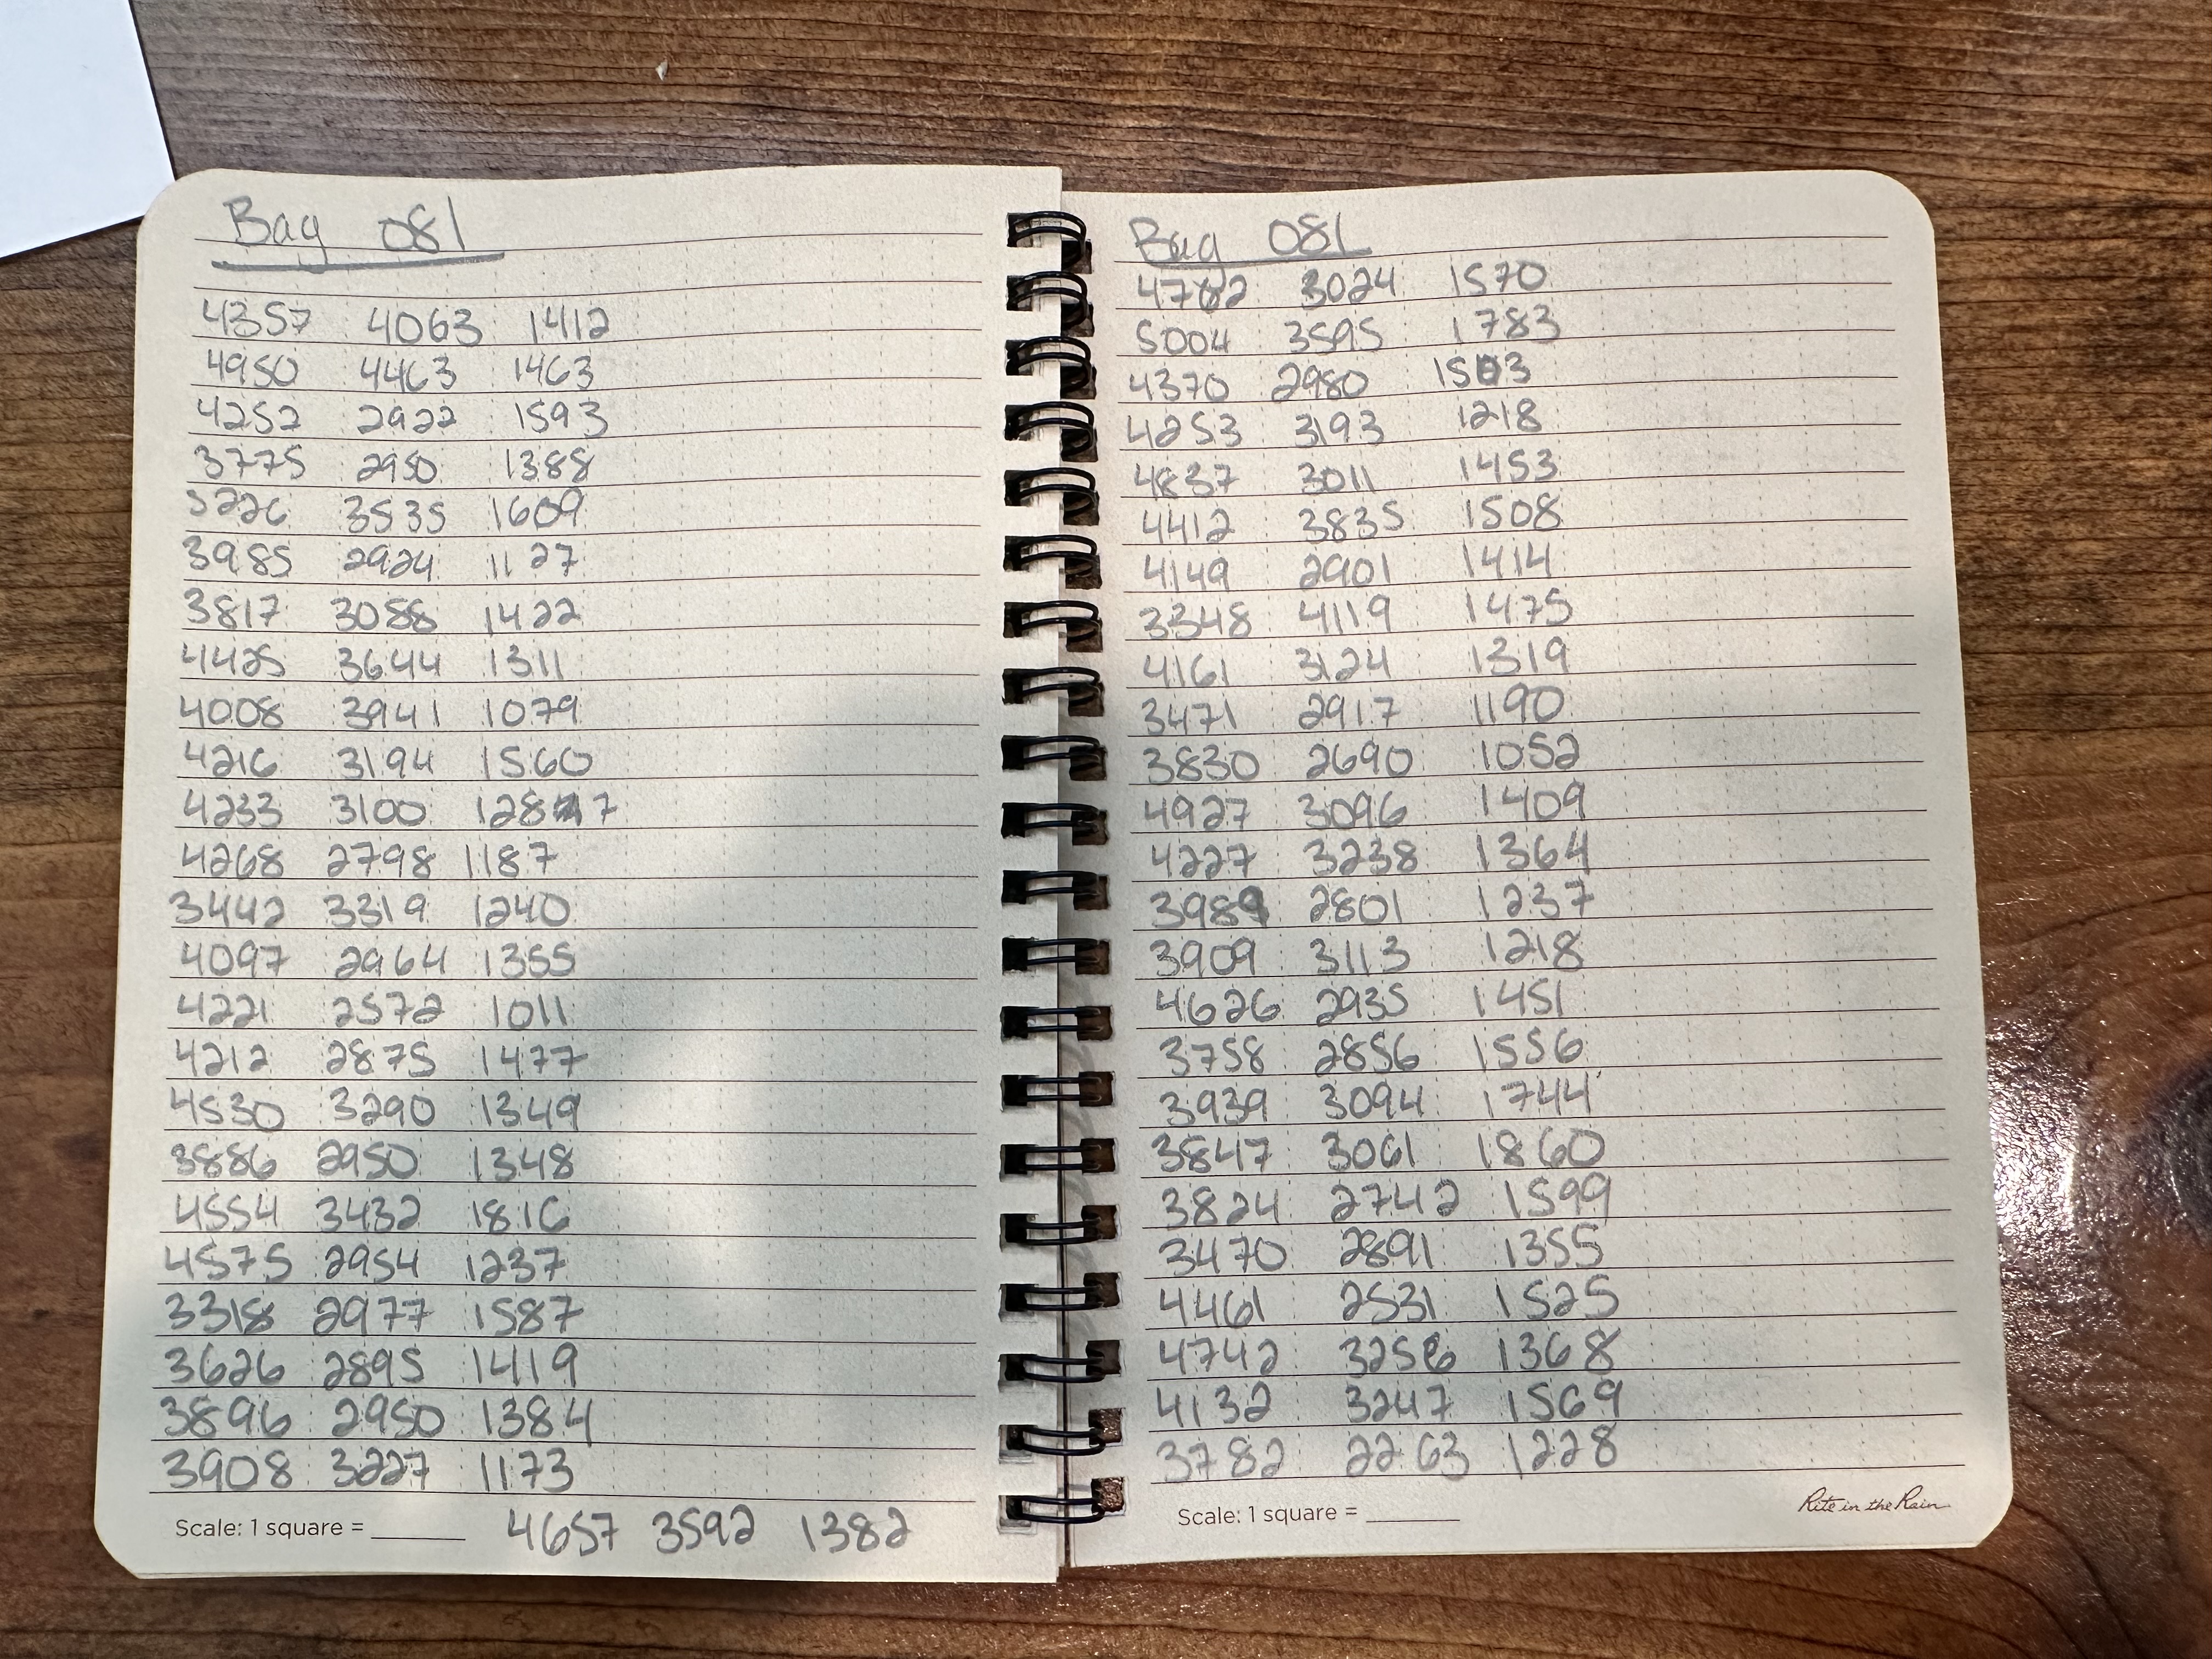 Bay 081
4357 4063 1412
4950 4463 1463
4252 2922 1593
3775 2950 1388
5226 3535 1609
3985 2924 1127
3817 3088 1422
4485 3644 1311
4008 3941 1079
4216 3194 1560
4233 3100 1287
4268 2798 1187
3442 3319 1240
4097 2964 1355
4221 2572 1011
4212 2875 1477
4530 3290 1349
3886 2950 1348
4554 3432 1816
4575 2954 1237
3358 2977 1587
3626 2895 1419
3896 2950 1384
3908 3227 1173
Scale: 1 square =
4657 3592 1382
Bay 081
4782 3024 1570
5004 3595 1783
4370 2980 1513
4253 3193 1218
3011 1453
4412 3835 1508
4149 2901 1414
3348 4119 1475
4161 3124 1319
3471 2917 1190
3830 2690 1052
4927 3096 1409
4227 3238 1364
3989 2801 1237
3909 3113 1218
4626 2935 1451
3758 2856 1556
3939 3094 1744
3847 3061 1860
3824 2742 1599
3470 2891 1355
4461 2531 1525
4742 3256 1368
4132 3247 1569
3782 2263 1228
Scale: 1 square =
Rite in the Rain